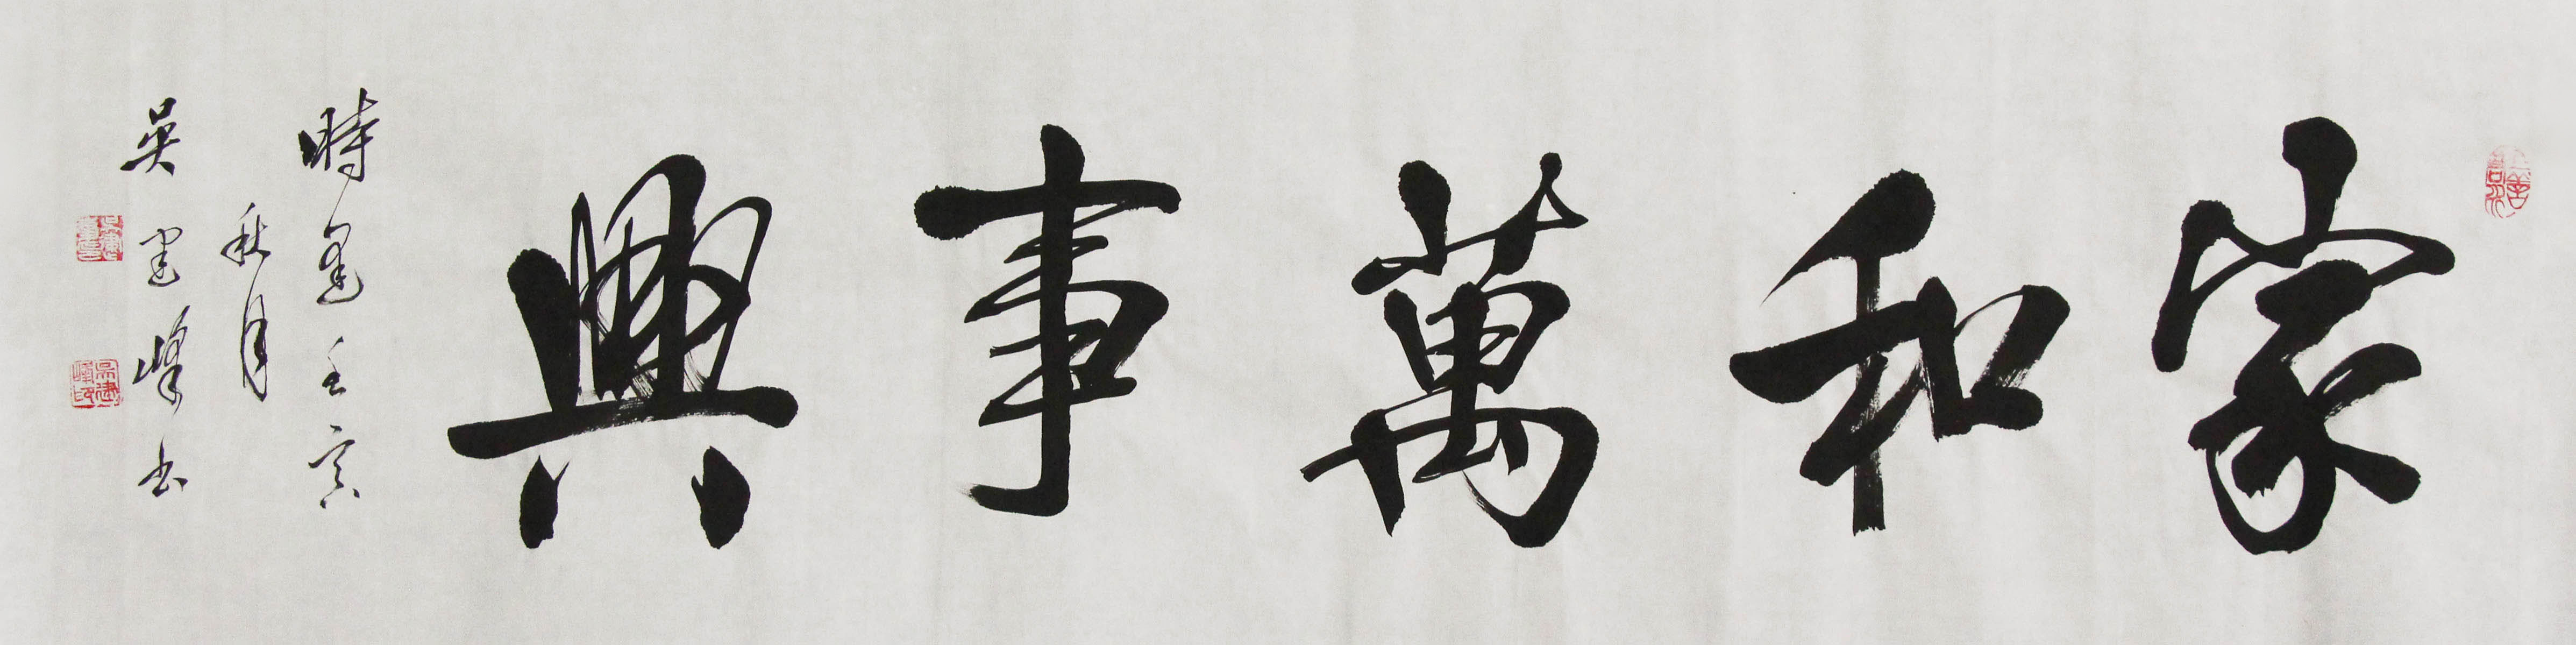 家和萬事興
時逢壬寅
秋月
吳建峰書